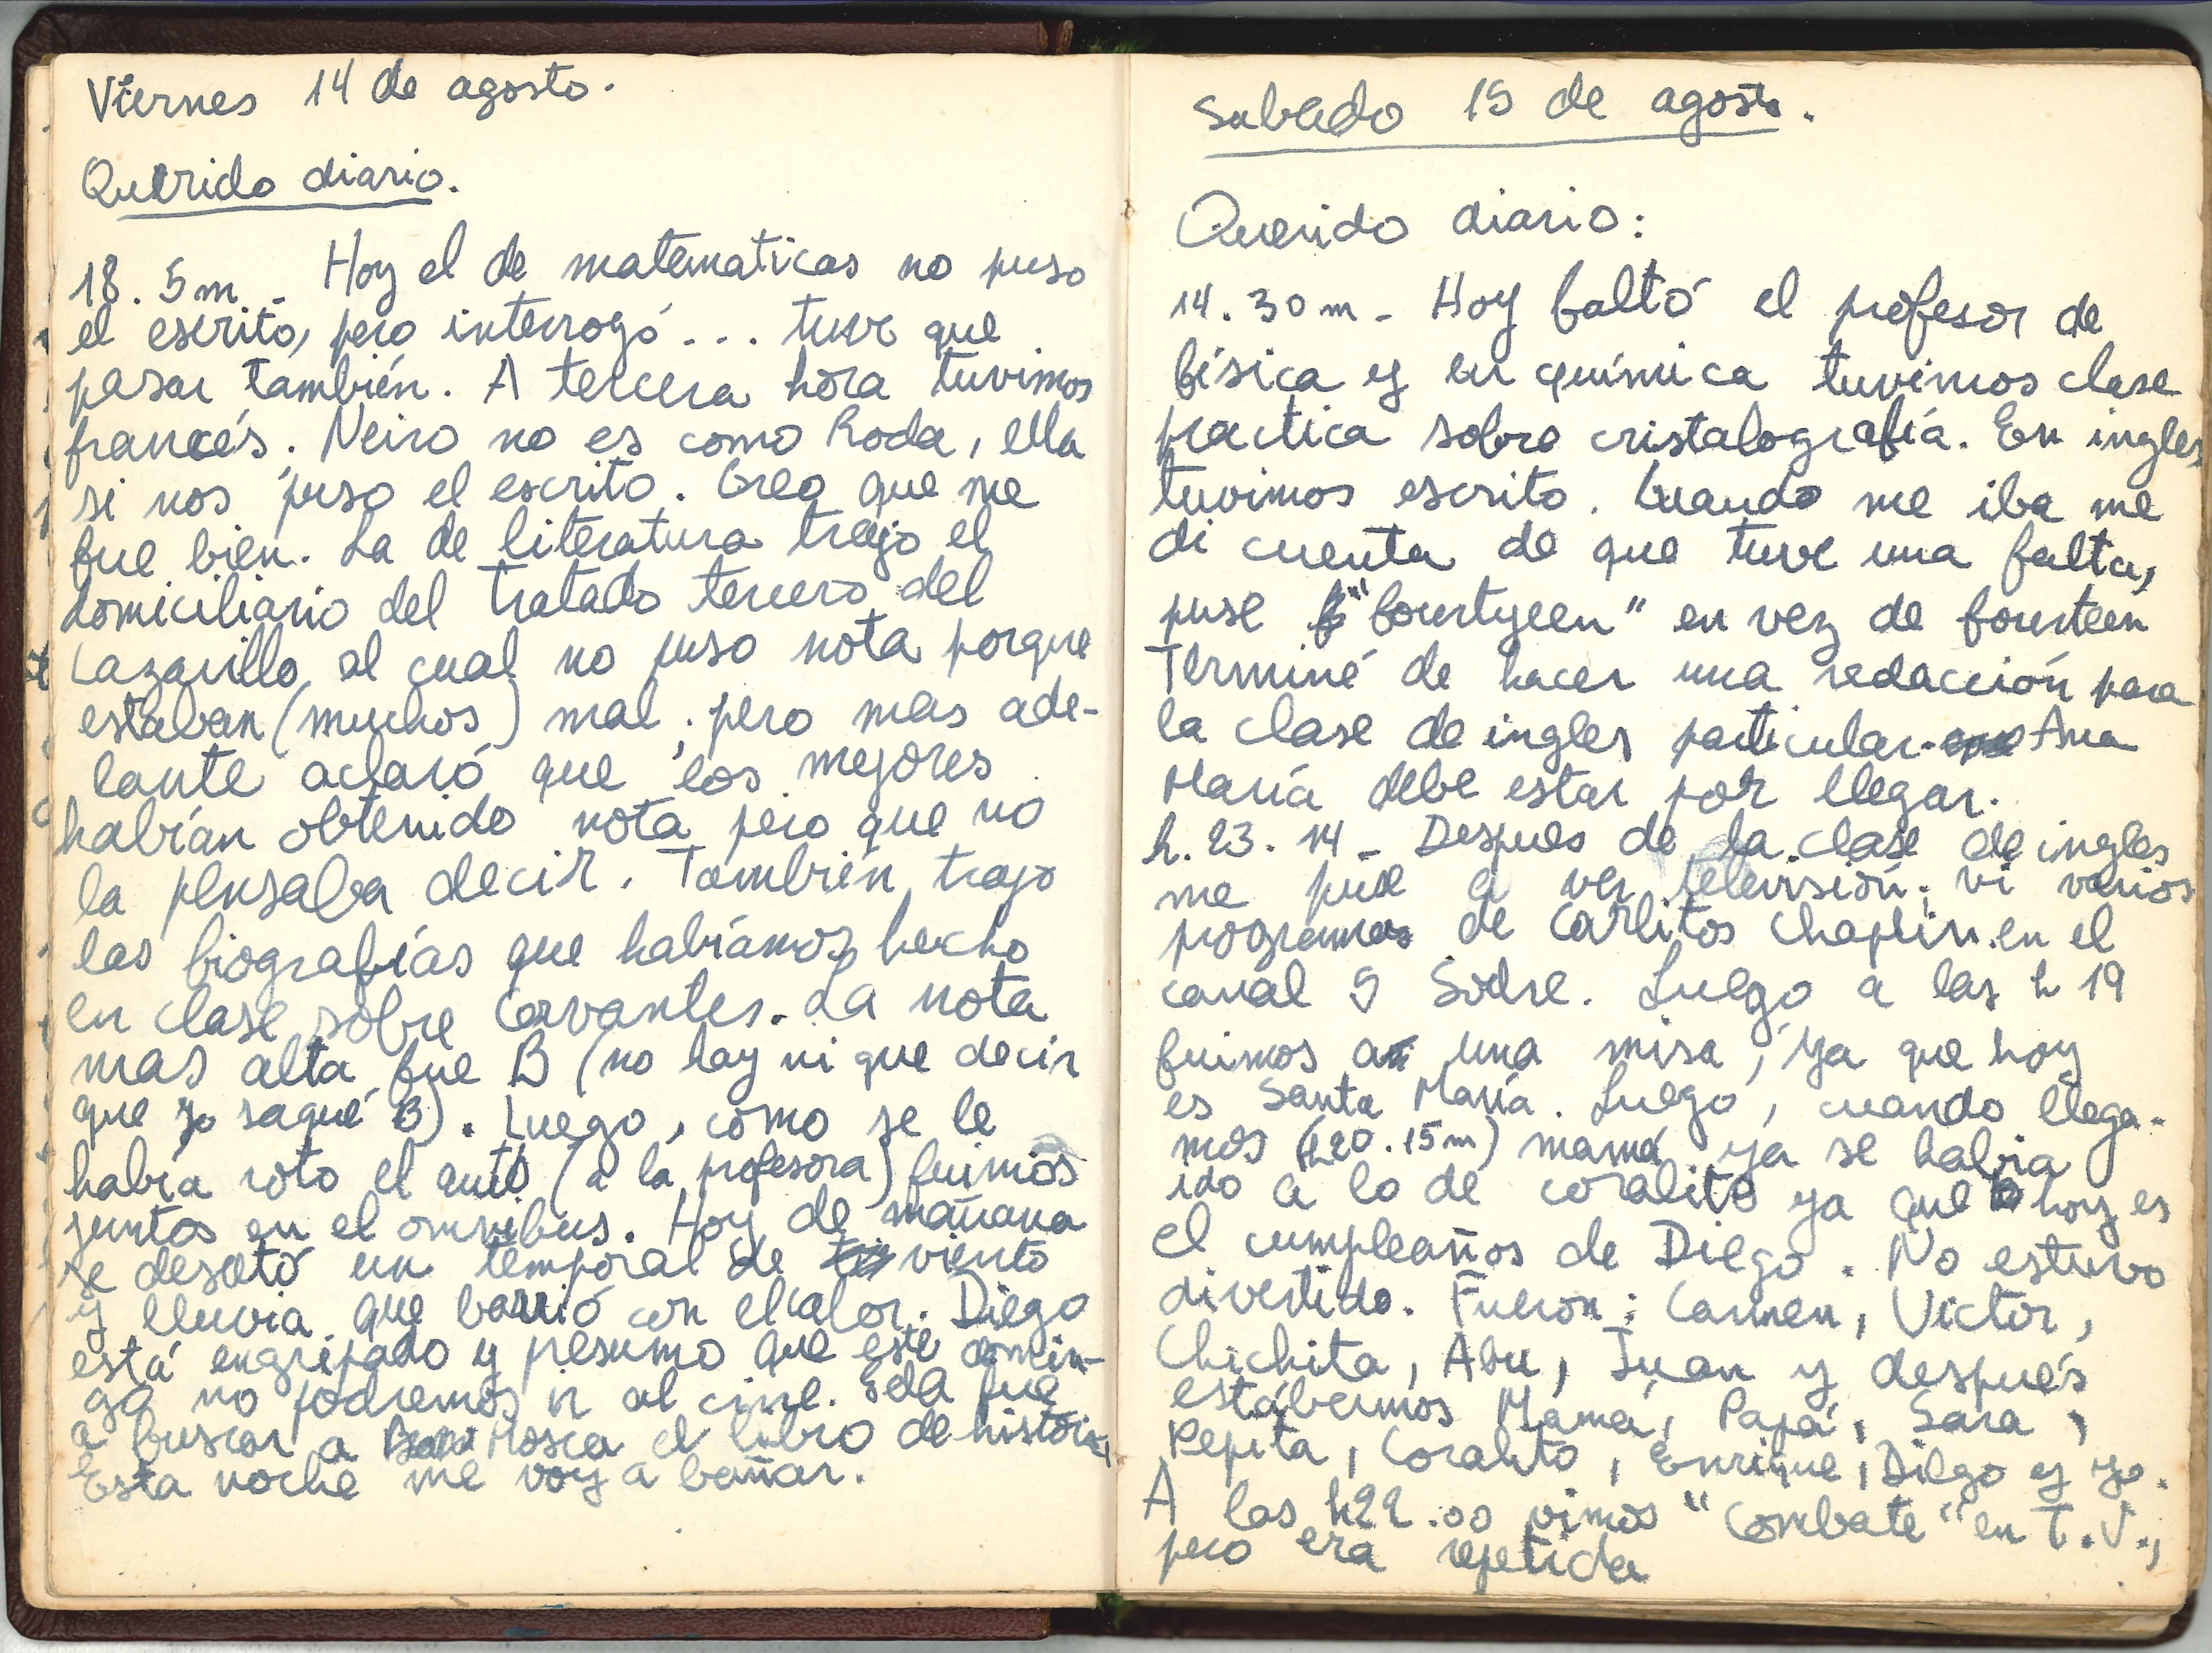 Viernes 14 de agosto.
Querido diario.
18. 5m - Hoy el de matematicas no puso
el escrito, pero interrogó... tuve que
pasar también. A tercera hora tuvimos
francés. Neiro no es como Roda, ella
si nos puso el escrito. Creo que me
fue bien. La de literatura trajo el
domiciliario del tratado tercero del
Lazarillo, al cual no puso nota porque
estaban (muchos) mal; pero mas ade-
lante aclaró que los mejores
habrían obtenido nota pero que no
la pensaba decir. También trajo
las biografías que habíamos hecho
en clase sobre Cervantes. La nota
mas alta fue B (no hay ni que decir
que yo saqué B). Luego, como se le
había roto el auto (a la profesora) fuimos
juntos en el omnibus. Hoy de mañana
se desató un temporal de viento
y lluvia que barrió con el calor. Diego
está engripado y presumo que este domin-
go no podremos ir al cine. Eda fue
a buscar a Mosca el libro de historia,
Esta noche me voy a bañar.
Sabado 15 de agosto.
Querido diario:
14. 30m - Hoy faltó el profesor de
física y en química tuvimos clase
practica sobre cristalografía. En ingles
tuvimos escrito. Cuando me iba me
di cuenta de que tuve una falta,
puse "fourtyeen" en vez de fourteen
Terminé de hacer una redacción para
la clase de ingles particular. Ana
María debe estar por llegar.
h. 23. 14 - Despues de la clase de ingles
me puse a ver televisión; vi varios
programas de Carlitos Chaplin en el
canal 5 Sodre. Luego a las h 19
fuimos a una misa, ya que hoy
es Santa María. Luego, cuando llega-
mos (h20.15m) mamá ya se había
ido a lo de coralito ya que hoy es
el cumpleaños de Diego. No estuvo
divertido. Fueron: Carmen, Victor,
Chichita, Abu, Juan y después
estábamos Mamá, Papá, Sara,
Pepita, Coralito, Enrique, Diego y yo.
A las h22.00 vimos "Combate" en T.V.,
pero era repetida